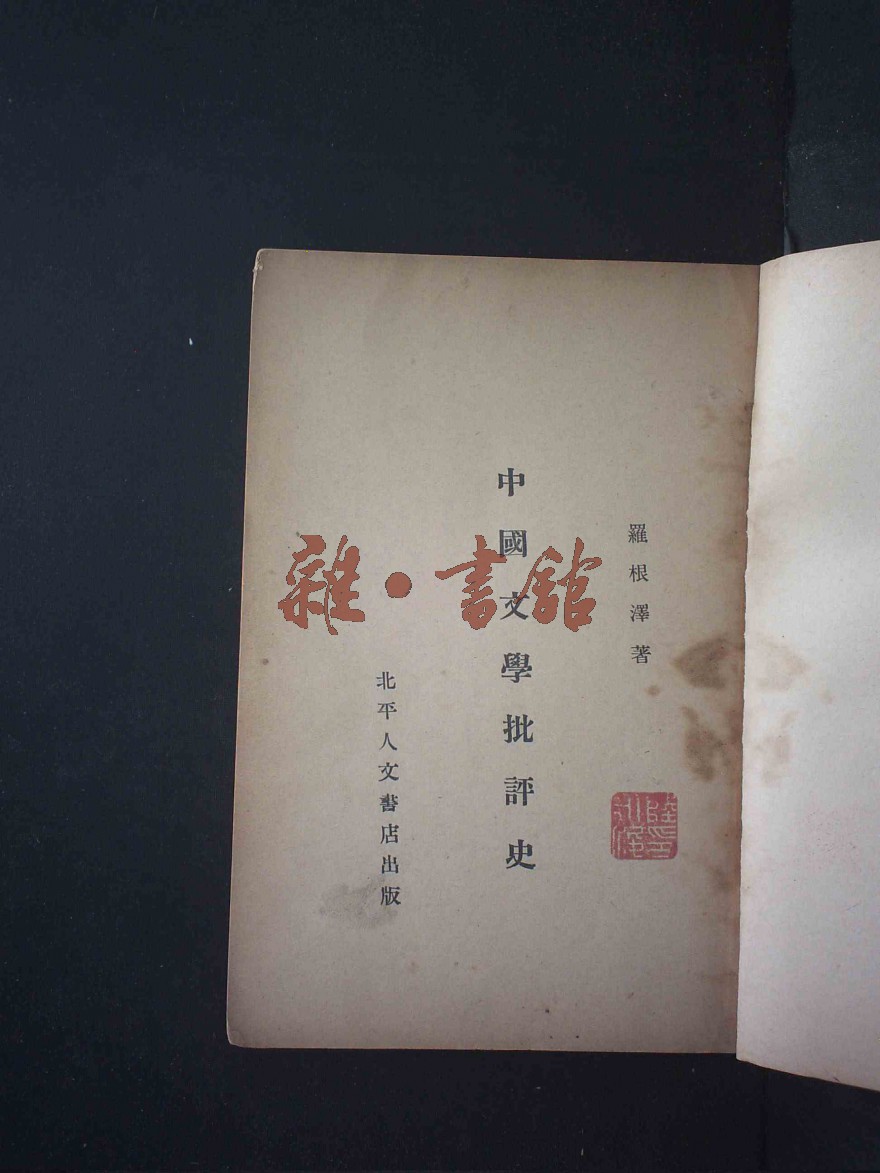 羅根澤著
中國文學批評史
北平人文書店出版
雜·書館